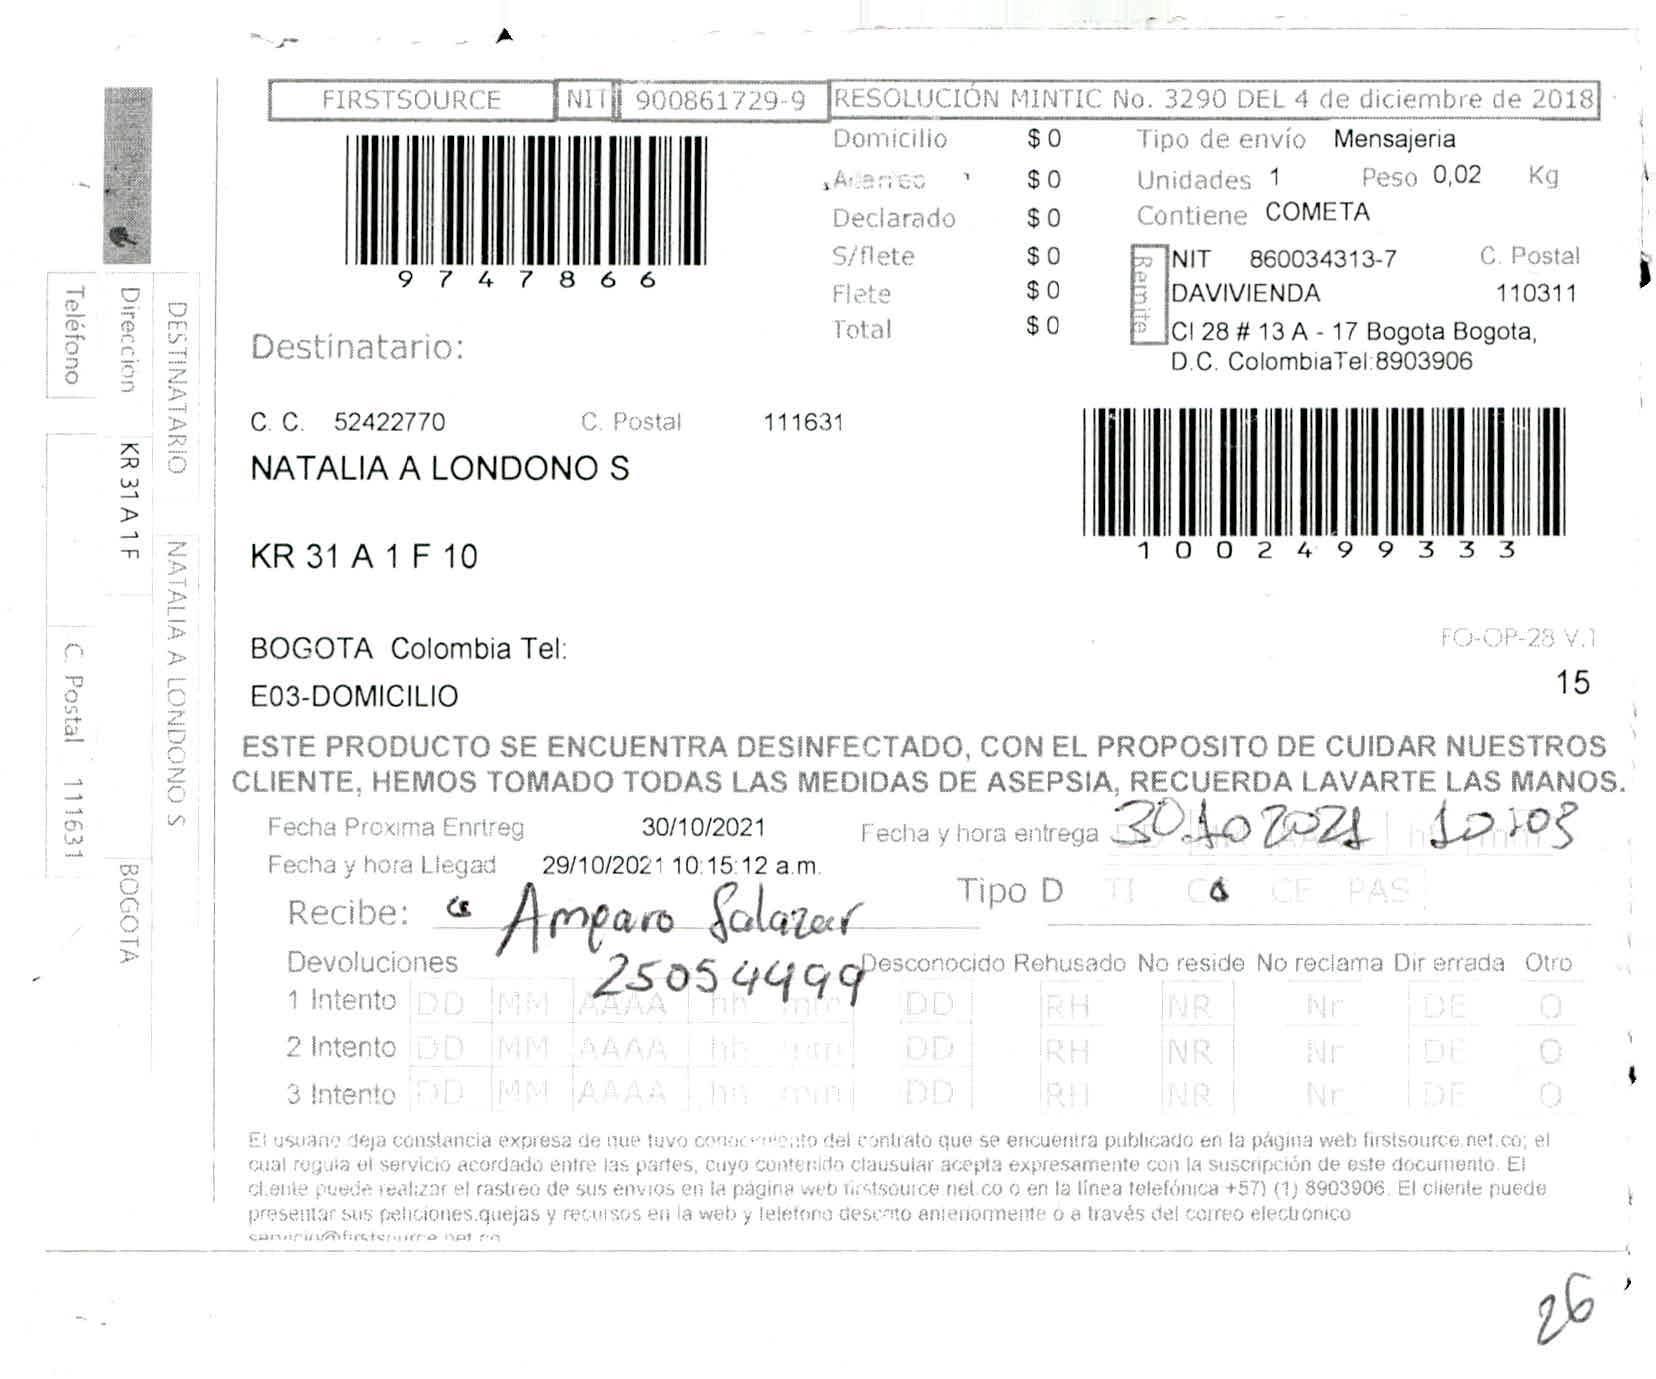 FIRSTSOURCE NIT 900861729-9 RESOLUCIÓN MINTIC No. 3290 DEL 4 de diciembre de 2018
9747866
Domicilio $ 0
$ 0
Declarado $ 0
S/flete $ 0
Flete $ 0
Total $ 0
Tipo de envío Mensajeria
Unidades 1 Peso 0,02 Kg
Contiene COMETA
Remite
NIT 860034313-7 C. Postal
DAVIVIENDA 110311
Cl 28 # 13 A - 17 Bogota Bogota,
D.C. ColombiaTel:8903906
1002499333
Destinatario:
C. C. 52422770 C. Postal 111631
NATALIA A LONDONO S
KR 31 A 1 F 10
BOGOTA Colombia Tel:
E03-DOMICILIO
FO-OP-28 V.1
15
ESTE PRODUCTO SE ENCUENTRA DESINFECTADO, CON EL PROPOSITO DE CUIDAR NUESTROS
CLIENTE, HEMOS TOMADO TODAS LAS MEDIDAS DE ASEPSIA, RECUERDA LAVARTE LAS MANOS.
Fecha Proxima Enrtreg 30/10/2021 Fecha y hora entrega 30 10 2021 10:03
Fecha y hora Llegad 29/10/2021 10:15:12 a.m.
Tipo D TI CE PAS
Recibe: Amparo Salazar
25054499
Devoluciones Desconocido Rehusado No reside No reclama Dir errada Otro
1 Intento DD MM AAAA hh mm DD RH NR Nr DE O
2 Intento DD MM AAAA hh mm DD RH NR Nr DE O
3 Intento DD MM AAAA hh mm DD RH NR Nr DE O
El usuario deja constancia expresa de que tuvo conocimiento del contrato que se encuentra publicado en la página web firstsource.net.co; el
cual regula el servicio acordado entre las partes, cuyo contenido clausular acepta expresamente con la suscripción de este documento. El
cliente puede realizar el rastreo de sus envios en la página web firstsource.net.co o en la línea telefónica +57) (1) 8903906. El cliente puede
presentar sus peticiones,quejas y recursos en la web y telefono descrito anteriormente o a través del correo electronico
servicio@firstsource.net.co
DESTINATARIO NATALIA A LONDONO S
Direccion KR 31 A 1 F BOGOTA
Teléfono C. Postal 111631
26